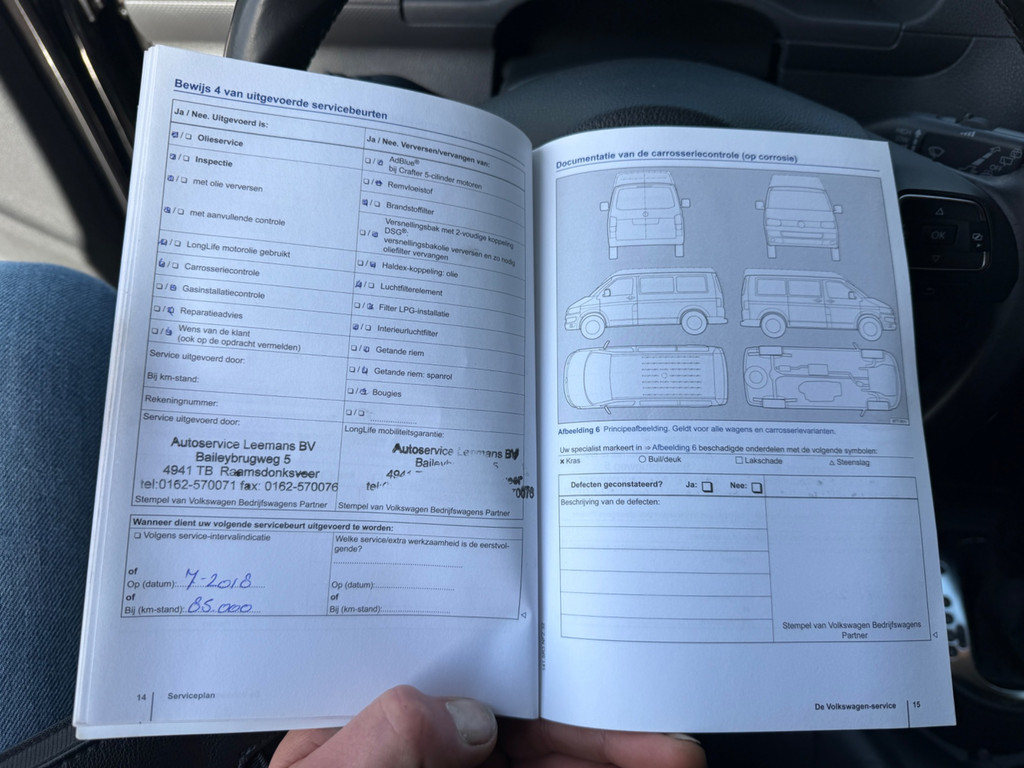 Bewijs 4 van uitgevoerde servicebeurten
Ja / Nee. Uitgevoerd is:
Olieservice
Inspectie
met olie verversen
met aanvullende controle
LongLife motorolie gebruikt
Carrosseriecontrole
Gasinstallatiecontrole
Reparatieadvies
Wens van de klant
(ook op de opdracht vermelden)
Service uitgevoerd door:
Bij km-stand:
Rekeningnummer:
Service uitgevoerd door:
Autoservice Leemans BV
Baileybrugweg 5
4941 TB Raamsdonksveer
tel:0162-570071 fax: 0162-570076
Stempel van Volkswagen Bedrijfswagens Partner
Ja / Nee. Verversen/vervangen van:
AdBlue®
bij Crafter 5-cilinder motoren
Remvloeistof
Brandstoffilter
Versnellingsbak met 2-voudige koppeling
DSG®:
versnellingsbakolie verversen en zo nodig
oliefilter vervangen
Haldex-koppeling: olie
Luchtfilterelement
Filter LPG-installatie
Interieurluchtfilter
Getande riem
Getande riem: spanrol
Bougies
LongLife mobiliteitsgarantie:
Autoservice Leemans BV
Stempel van Volkswagen Bedrijfswagens Partner
Wanneer dient uw volgende servicebeurt uitgevoerd te worden:
Volgens service-intervalindicatie
of
Op (datum): 7-2018
of
Bij (km-stand): 85.000
Welke service/extra werkzaamheid is de eerstvol-
gende?
Op (datum):
of
Bij (km-stand):
14 Serviceplan
Documentatie van de carrosseriecontrole (op corrosie)
Afbeelding 6 Principeafbeelding. Geldt voor alle wagens en carrosserievarianten.
Uw specialist markeert in ⇒ Afbeelding 6 beschadigde onderdelen met de volgende symbolen:
x Kras ○ Buil/deuk □ Lakschade △ Steenslag
Defecten geconstateerd? Ja: □ Nee: □
Beschrijving van de defecten:
Stempel van Volkswagen Bedrijfswagens
Partner
De Volkswagen-service 15
OK